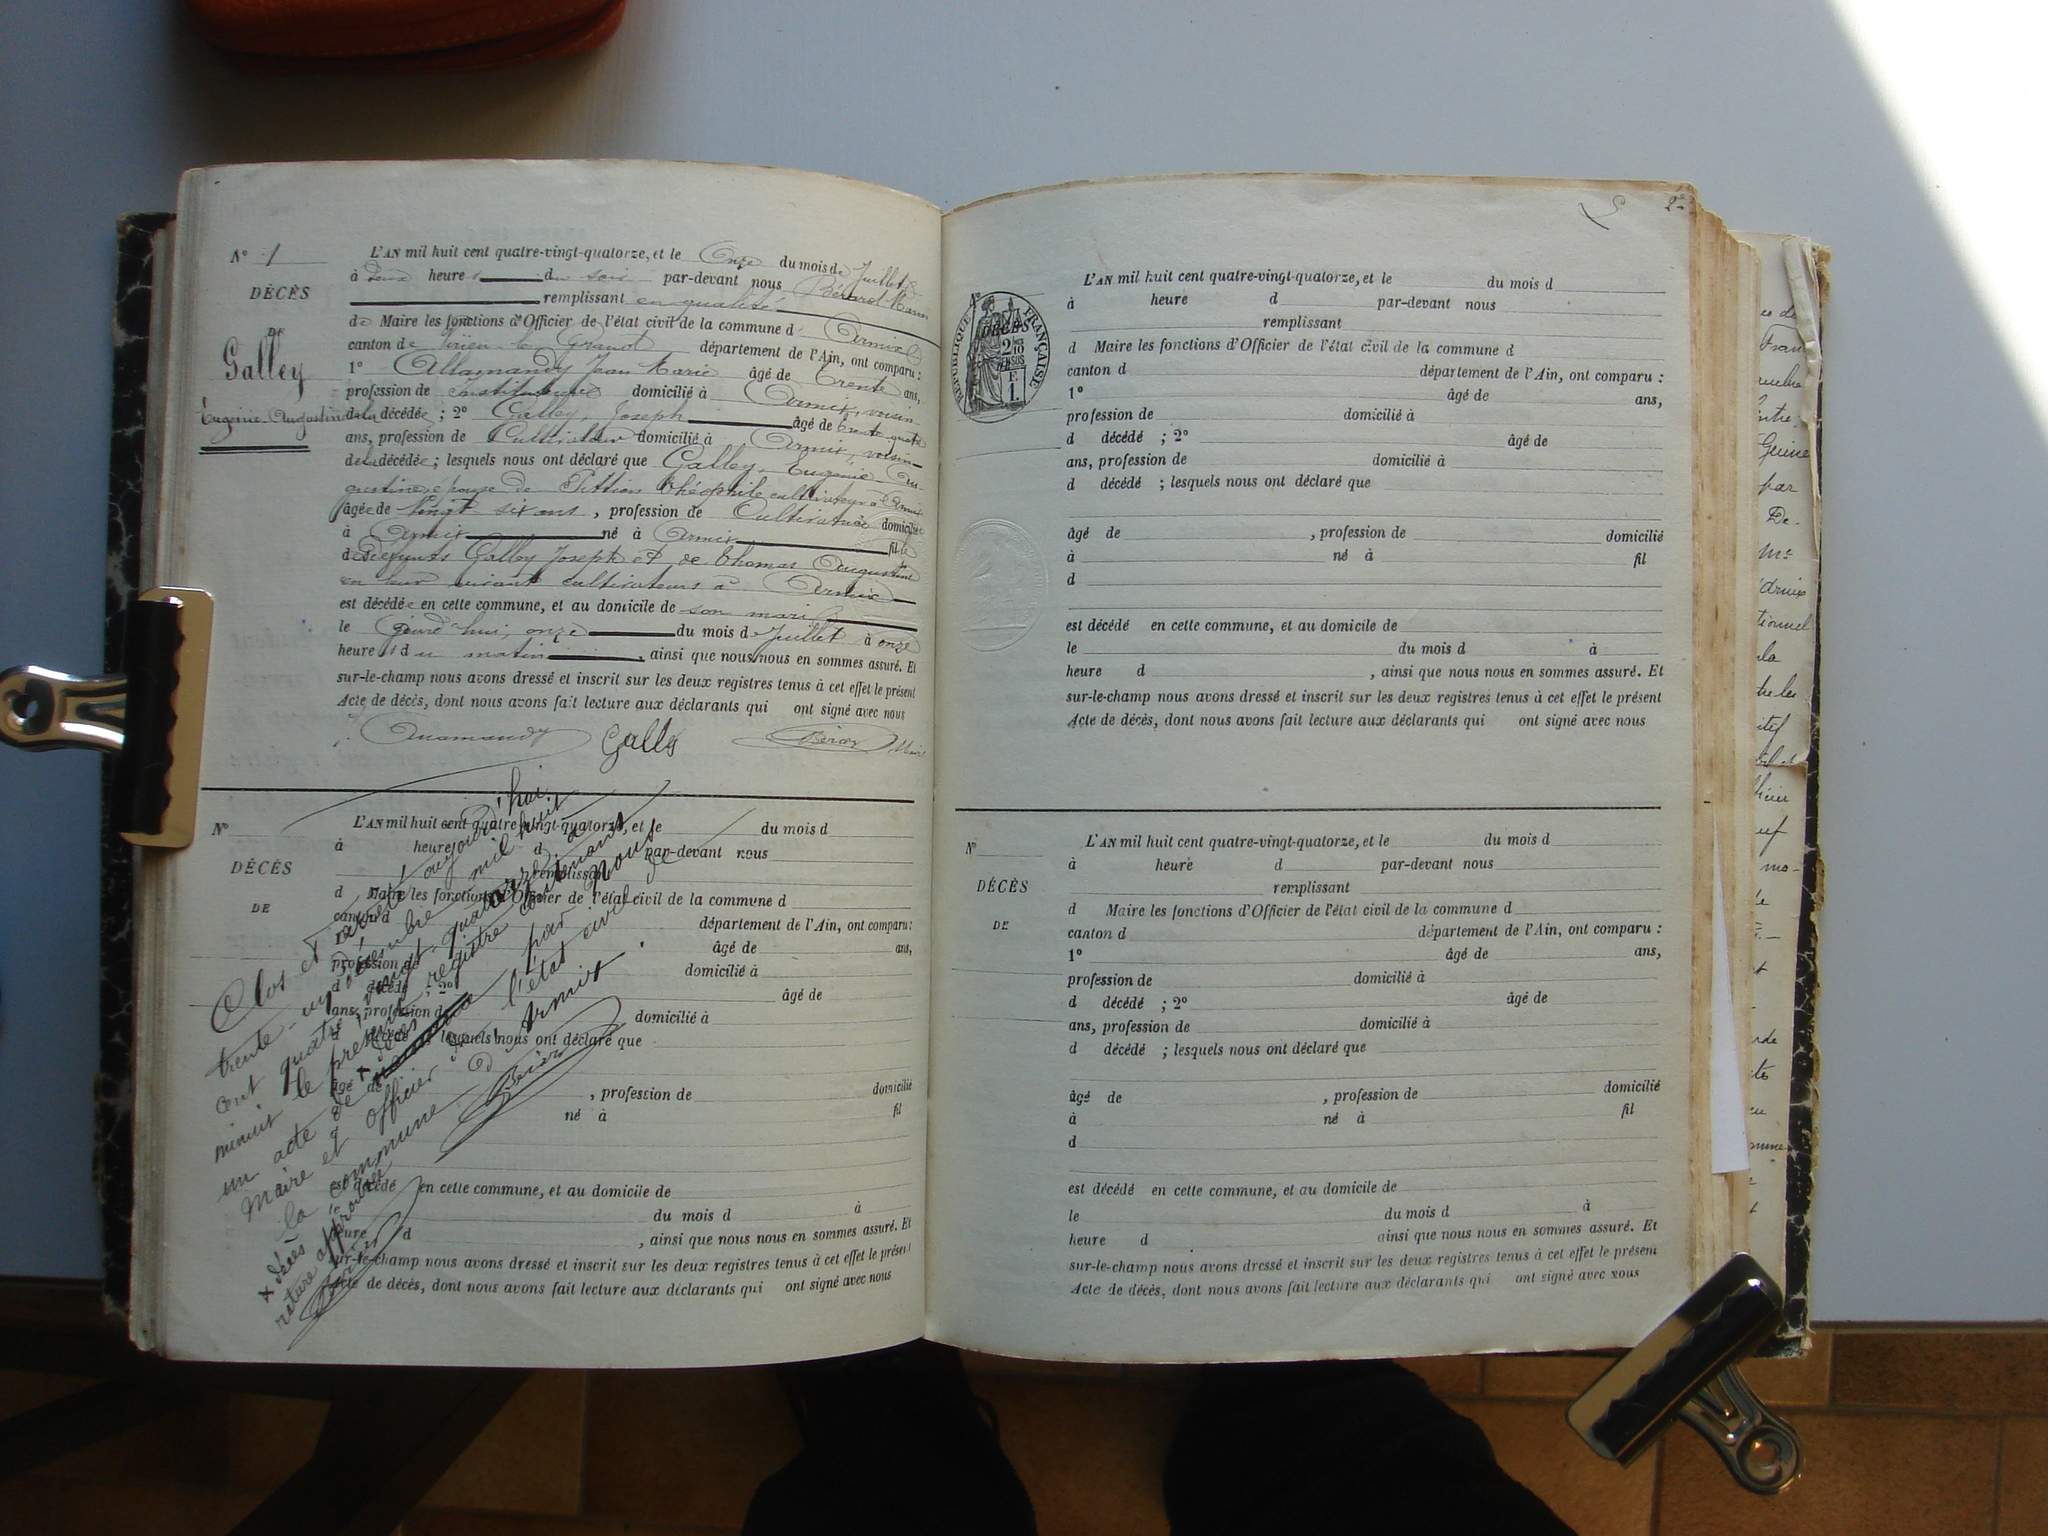 N° 1
DÉCÈS
DE
Galley
Eugénie Augustine
L'AN mil huit cent quatre-vingt-quatorze, et le Onze du mois de Juillet
à deux heures du soir par-devant nous Bérard Marin
remplissant en qualité
de Maire les fonctions d'Officier de l'état civil de la commune d'Armix
canton de Virieu-le-Grand département de l'Ain, ont comparu :
1° Allamandy Jean Marie âgé de trente ans,
profession de Instituteur domicilié à Armix, voisin
de la décédée ; 2° Galley, Joseph âgé de trente-quatre
ans, profession de Cultivateur domicilié à Armix, voisin
de la décédée ; lesquels nous ont déclaré que Galley, Eugénie Au-
gustine épouse de Pittion Théophile cultivateur à Armix
âgée de vingt six ans, profession de Cultivatrice domiciliée
à Armix né à Armix fille
de défunts Galley Joseph et de Thomas Augustine
en leur vivant cultivateurs à Armix
est décédée en cette commune, et au domicile de son mari
le jourd'hui, onze du mois de Juillet à onze
heures du matin, ainsi que nous nous en sommes assuré. Et
sur-le-champ nous avons dressé et inscrit sur les deux registres tenus à cet effet le présent
Acte de décès, dont nous avons fait lecture aux déclarants qui ont signé avec nous
Galley
Maire
N°
DÉCÈS
DE
L'AN mil huit cent quatre-vingt-quatorze, et le du mois d
à heure d par-devant nous
remplissant
d Maire les fonctions d'Officier de l'état civil de la commune d
canton d
département de l'Ain, ont comparu :
âgé de ans,
profession de domicilié à
d décédé ; 2° âgé de
ans, profession d domicilié à
décédé lesquels nous ont déclaré que
âgé de , profession de domicilié
né à fil
est décédé en cette commune, et au domicile de
du mois d à
heure d , ainsi que nous nous en sommes assuré. Et
sur-le-champ nous avons dressé et inscrit sur les deux registres tenus à cet effet le présent
Acte de décès, dont nous avons fait lecture aux déclarants qui ont signé avec nous
Clos et arrêté aujourd'hui
trente-un décembre mil huit
cent quatre vingt-quatorze, à
minuit le présent registre contenant
un acte de × par nous
Maire et officier de l'état civil de
la commune d'Armix.
× décès
rature approuvée
2
RÉPUBLIQUE FRANÇAISE
N°
DÉCÈS
L'AN mil huit cent quatre-vingt-quatorze, et le du mois d
à heure d par-devant nous
remplissant
d Maire les fonctions d'Officier de l'état civil de la commune d
canton d département de l'Ain, ont comparu :
1° âgé de ans,
profession de domicilié à
d décédé ; 2° âgé de
ans, profession de domicilié à
d décédé ; lesquels nous ont déclaré que
âgé de , profession de domicilié
à né à fil
d
est décédé en cette commune, et au domicile de
le du mois d à
heure d , ainsi que nous nous en sommes assuré. Et
sur-le-champ nous avons dressé et inscrit sur les deux registres tenus à cet effet le présent
Acte de décès, dont nous avons fait lecture aux déclarants qui ont signé avec nous
N°
DÉCÈS
DE
L'AN mil huit cent quatre-vingt-quatorze, et le du mois d
à heure d par-devant nous
remplissant
d Maire les fonctions d'Officier de l'état civil de la commune d
canton d département de l'Ain, ont comparu :
1° âgé de ans,
profession de domicilié à
d décédé ; 2° âgé de
ans, profession de domicilié à
d décédé ; lesquels nous ont déclaré que
âgé de , profession de domicilié
à né à fil
d
est décédé en cette commune, et au domicile de
le du mois d à
heure d ainsi que nous nous en sommes assuré. Et
sur-le-champ nous avons dressé et inscrit sur les deux registres tenus à cet effet le présent
Acte de décès, dont nous avons fait lecture aux déclarants qui ont signé avec nous